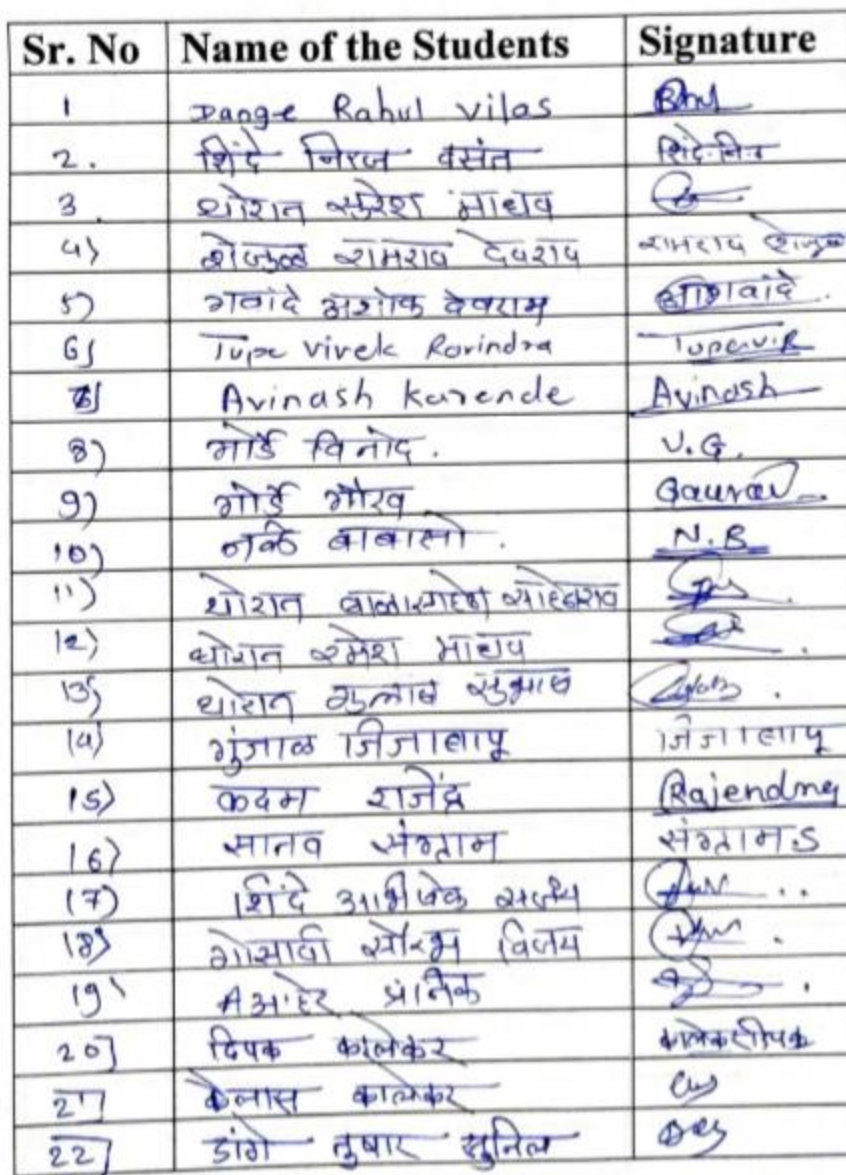 Sr. No Name of the Students Signature
1 Dange Rahul vilas
2. शिंदे निरज वसंत शिंदे.नि.व
3. थोरात सुरेश माधव
4) शेजुळ रामराव देवराव रामराव शेजुळ
5) गवांदे अशोक देवराम
6) Tupe vivek Ravindra Tupevir
7) Avinash Karende Avinash
8) गोर्डे विनोद. V.G.
9) गोर्डे गौरव Gaurav
10) नळे बाबासो. N.B
11) थोरात बाळासाहेब साहेबराव
12) थोरात रमेश माधव
13) थोरात गुलाब सुभाष
14) गुंजाळ जिजाबापू जिजाबापू
15) कदम राजेंद्र Rajendra
16) सानव संग्राम संग्राम.S
17) शिंदे अभिषेक संजय
18) गोसावी सौरभ विजय
19) आहेर प्रतिक
20] दिपक कालेकर
21] कैलास कालेकर
22] डांगे तुषार सुनिल